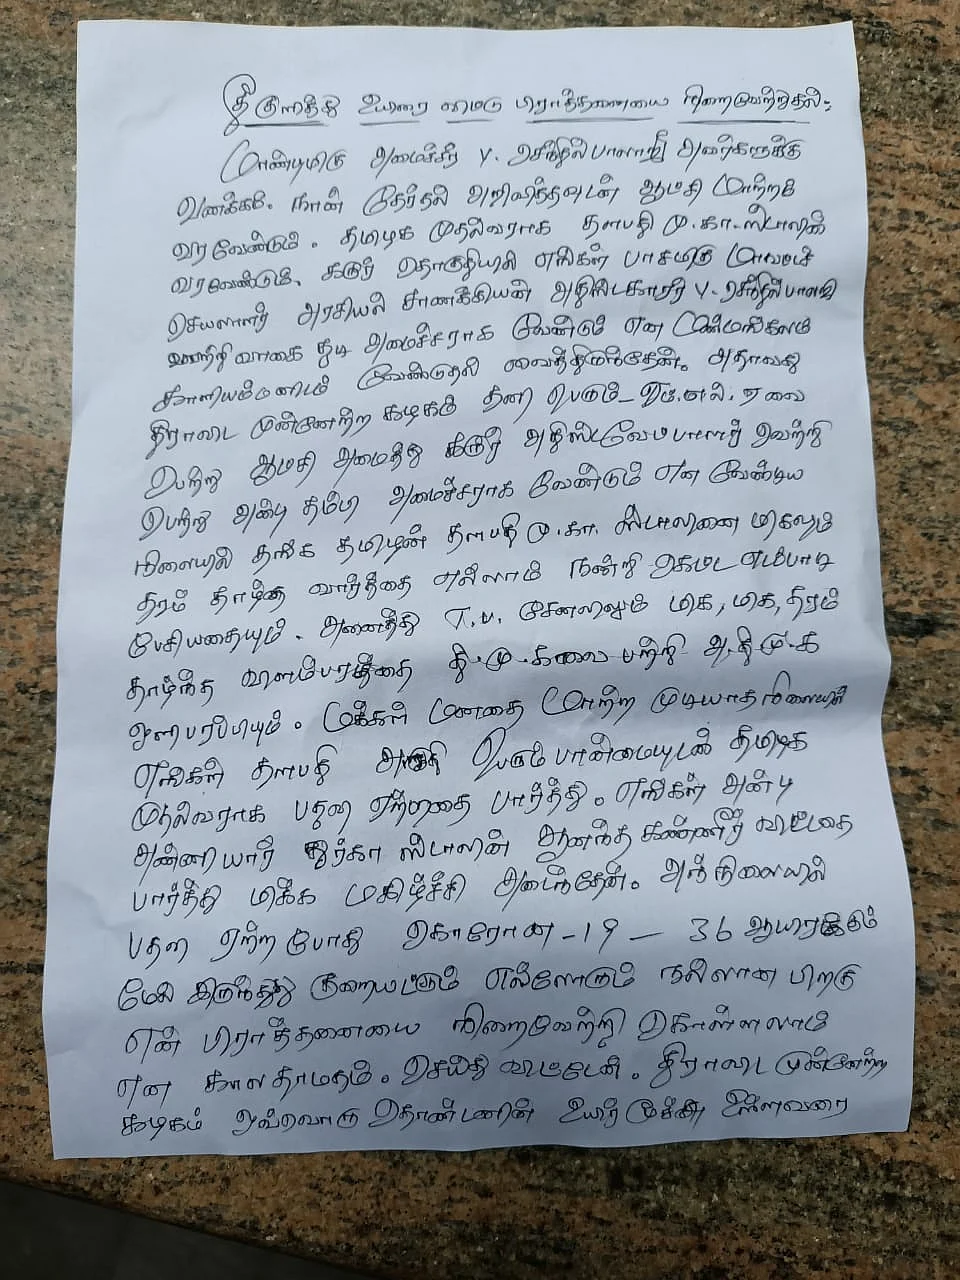 தீக்குளித்து உயிரை விட்டு பிரார்த்தனையை நிறைவேற்றுதல்:-
மாண்புமிகு அமைச்சர் V. செந்தில்பாலாஜி அவர்களுக்கு
வணக்கம். நான் தேர்தல் அறிவித்தவுடன் ஆட்சி மாற்றம்
வரவேண்டும். தமிழக முதல்வராக தளபதி மு.கா.ஸ்டாலின்
வரவேண்டும், கரூர் தொகுதியில் எங்கள் பாசமிகு மாவட்ட
செயலாளர் அரசியல் சாணக்கியன் V. செந்தில்பாலாஜி
வெற்றி வாகை சூடி அமைச்சராக வேண்டும் என
காளியம்மனிடம் வேண்டுதல் வைத்திருந்தேன். அதாவது
திராவிட முன்னேற்ற கழகம் தனி பெரும்
பெற்று ஆட்சி அமைத்து கரூர் வெற்றி
பெற்று அன்பு தம்பி அமைச்சராக வேண்டும் என வேண்டிய
நிலையில் தங்க தமிழன் தளபதி மு.கா. ஸ்டாலினை மிகவும்
தரம் தாழ்ந்த வார்த்தை எல்லாம் எடப்பாடி
பேசியதையும். அனைத்து T.V. சேனலிலும் மிக, மிக, தரம்
தாழ்ந்த விளம்பரத்தை தி.மு.கவை பற்றி அ.தி.மு.க
ஒளிபரப்பியும். மக்கள் மனதை மாற்ற முடியாத நிலையில்
எங்கள் தளபதி அறுதி பெரும்பான்மையுடன் தமிழக
முதல்வராக பதவி ஏற்றதை பார்த்து. எங்கள் அன்பு
அண்ணியார் துர்கா ஸ்டாலின் ஆனந்த கண்ணீர் விட்டதை
பார்த்து மிக்க மகிழ்ச்சி அடைந்தேன். அந்நிலையில்
பதவி ஏற்ற போது கொரோனா - 19 - 36 ஆயிரத்திற்கும்
மேல் இருந்தது குறையட்டும் எல்லோரும் நல்லான பிறகு
என் பிரார்த்தனையை நிறைவேற்றி கொள்ளலாம்
என காலதாமதம். செய்து விட்டேன். திராவிட முன்னேற்ற
கழகம் ஒவ்வொரு தொண்டனின் உயிர் மூச்சு உள்ளவரை